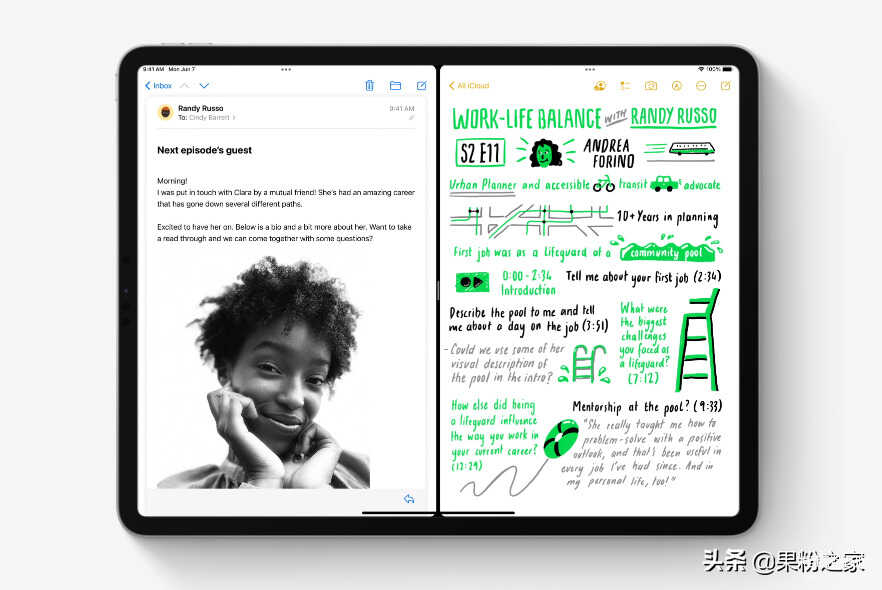 9:41 AM Mon Jun 7
Inbox
Randy Russo
9:41 AM
To: Cindy Barrett
Next episode's guest
Morning!
I was put in touch with Clara by a mutual friend! She's had an amazing career
that has gone down several different paths.
Excited to have her on. Below is a bio and a bit more about her. Want to take
a read through and we can come together with some questions?
100%
All iCloud
WORK-LIFE BALANCE WITH RANDY RUSSO
S2 E11
ANDREA
FORINO
Urban Planner and accessible transit advocate
10+ Years in planning
First job was as a lifeguard of a community pool
0:00 - 2:34
Introduction
Tell me about your first job (2:34)
Describe the pool to me and tell
me about a day on the job (3:51)
- Could we use some of her
visual description of
the pool in the intro?
What were
the biggest
challenges
you faced as
a lifeguard?
(7:12)
How else did being
a lifeguard influence
the way you work in
your current career?
(12:29)
Mentorship at the pool? (9:33)
"She really taught me how to
problem-solve with a positive
outlook, and that's been useful in
every job I've had since. And in
my personal life, too!"
头条 @果粉之家